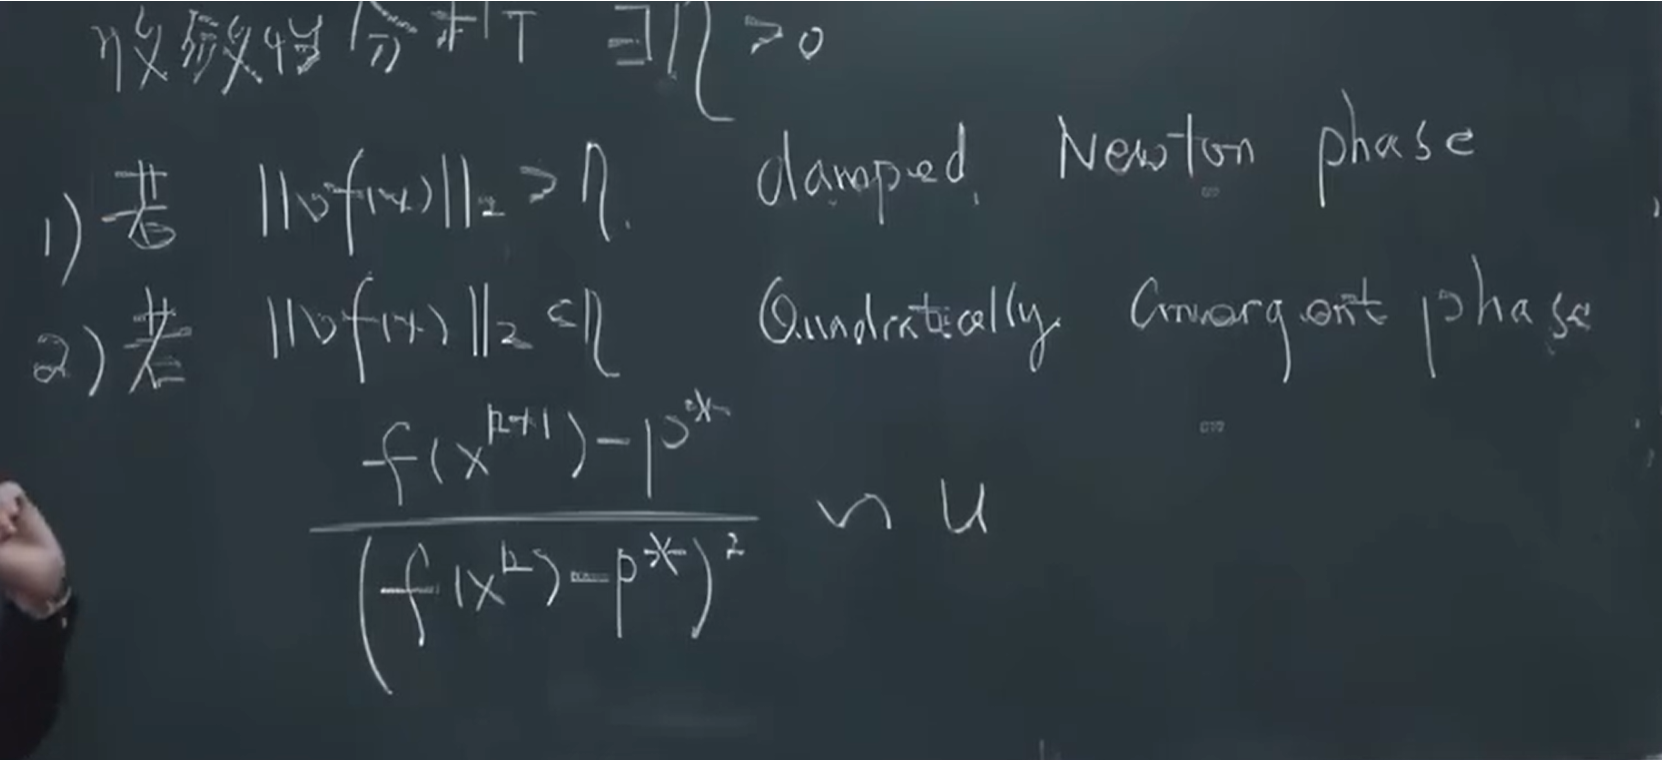 收敛性分析 ∃η >0
1) 若 ||∇f(x)||₂ > η. damped Newton phase
2) 若 ||∇f(x)||₂ ≤ η Quadratically Convergent phase
f(x^{k+1}) - p^*
(f(x^k) - p^*)^2